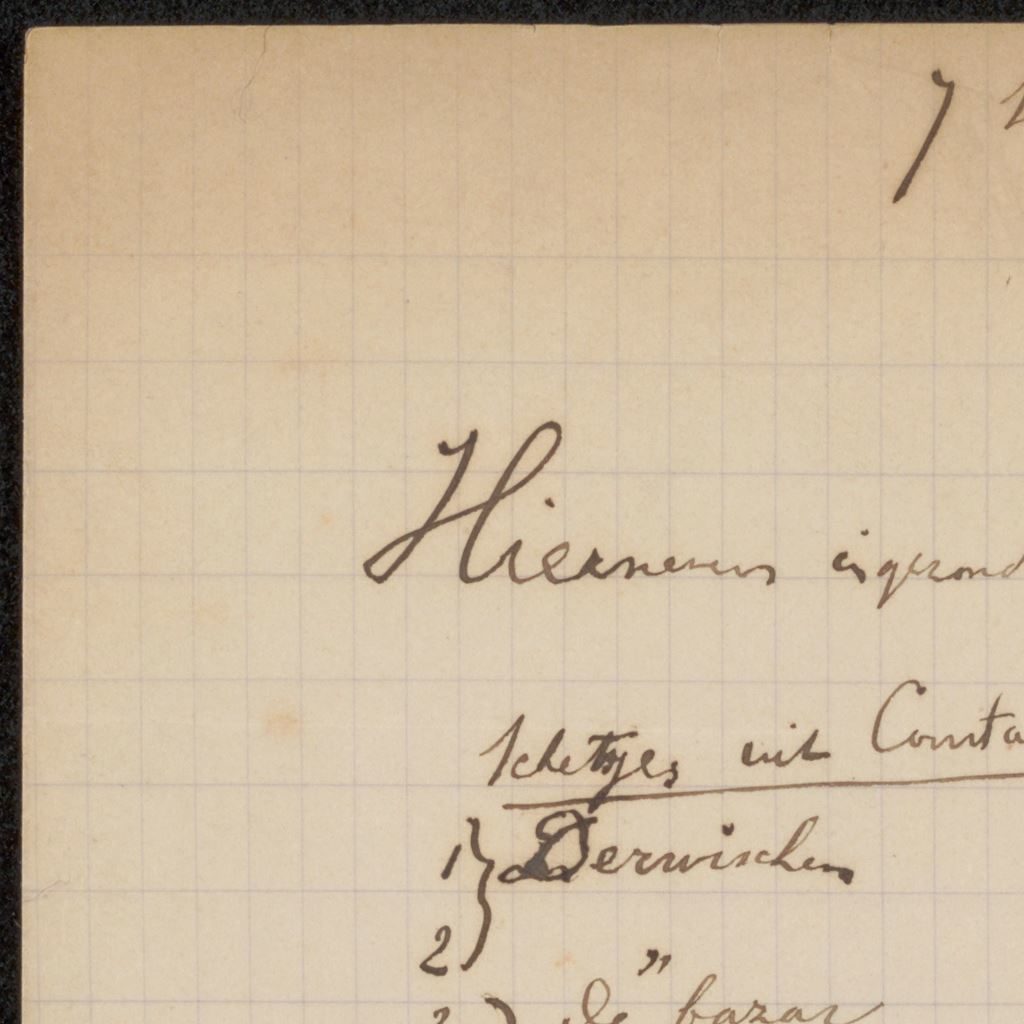 7
Hiernevens is gezond
schetjes uit Consta
1} Derwischen
2 "
3) de bazar